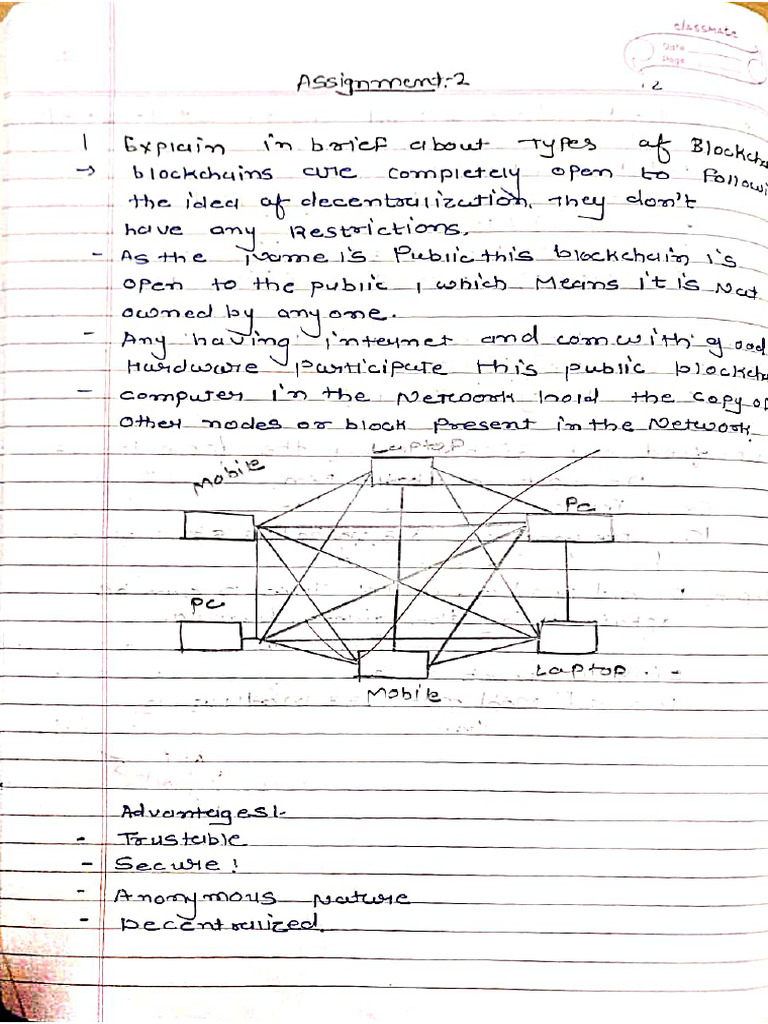 classmate
Date
Page
Assignment:-2
2
1 Explain in brief about Types of Blockcha
→ blockchains are completely open to followi
the idea of decentralization, They don't
have any Restrictions.
- As the name is Public this blockchain is
open to the public, which Means it is Not
owned by anyone.
- Any having internet and com with good
Hardware participate this public blockcha
- computer in the Network hold the copy of
other nodes or block present in the Network.
Laptop
Mobile
Pc
PC
Laptop
Mobile
Advantages:-
- Trustable
- Secure!
- Anonymous Nature
- Decentralized.